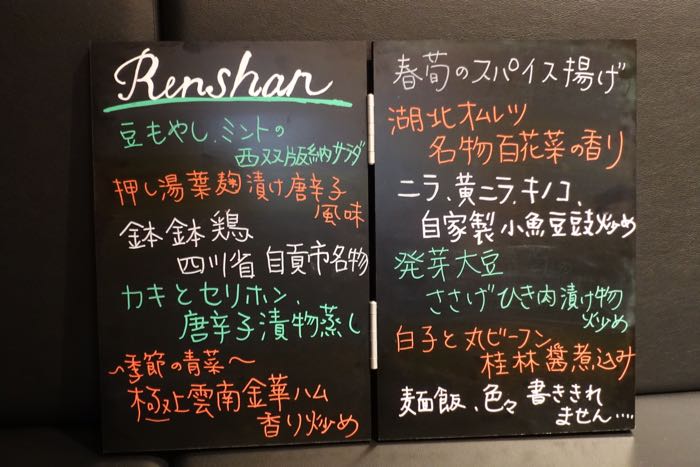 Renshan
豆もやし、ミントの
西双版納サラダ
押し湯葉麹漬け唐辛子
風味
鉢鉢鶏
四川省 自貢市名物
カキとセリホン、
唐辛子漬物蒸し
〜季節の青菜〜
極上雲南金華ハム
香り炒め
春筍のスパイス揚げ
湖北オムレツ
名物百花菜の香り
ニラ、黄ニラ、キノコ、
自家製小魚豆豉炒め
発芽大豆
ささげひき肉漬け物
炒め
白子と丸ビーフン、
桂林醤煮込み
麺飯、色々書ききれ
ません….